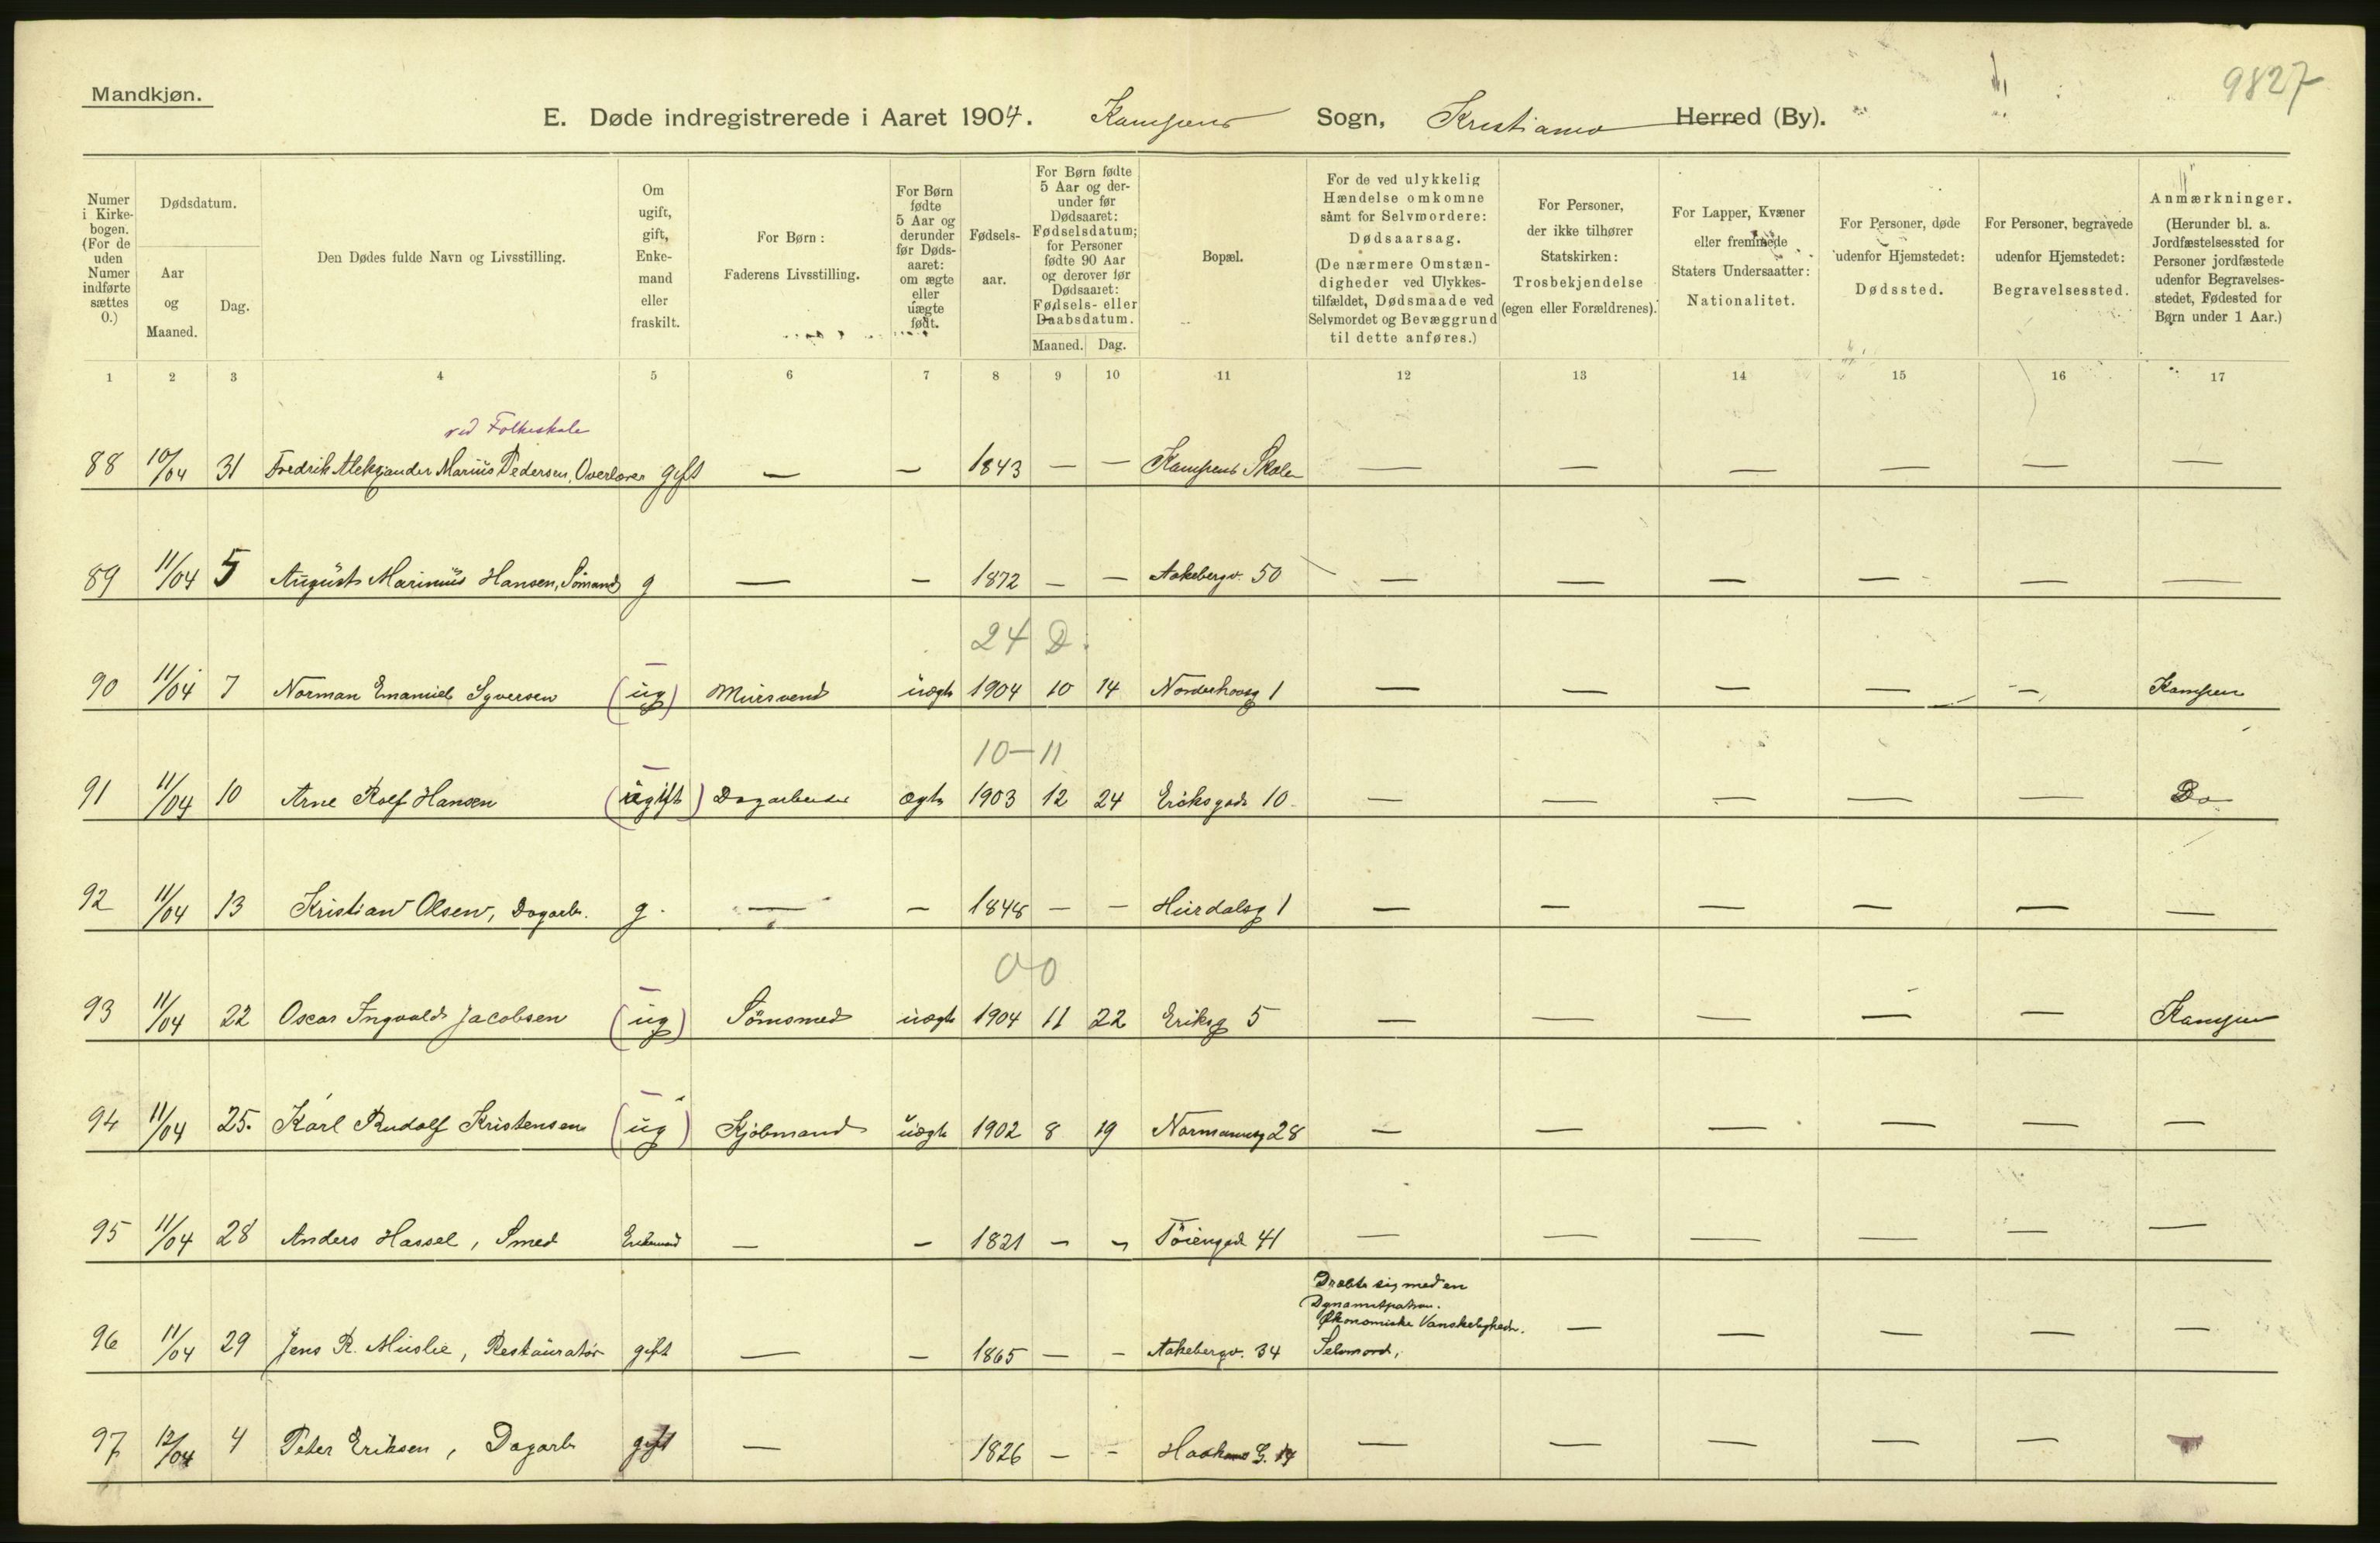 9827
Mandkjøn.
E. Døde indregistrerede i Aaret 1904. Kampens Sogn, Kristiania Herred (By).
Numer i Kirkebogen. (For de uden Numer indførte sættes 0.)
Dødsdatum.
Aar og Maaned.
Dag.
Den Dødes fulde Navn og Livsstilling.
Om ugift, gift, Enkemand eller fraskilt.
For Børn: Faderens Livsstilling.
For Børn fødte 5 Aar og derunder før Dødsaaret: om ægte eller uægte født.
Fødselsaar.
For Børn fødte 5 Aar og derunder før Dødsaaret: Fødselsdatum; for Personer fødte 90 Aar og derover før Dødsaaret: Fødsels- eller Daabsdatum.
Maaned. Dag.
Bopæl.
For de ved ulykkelig Hændelse omkomne samt for Selvmordere: Dødsaarsag. (De nærmere Omstændigheder ved Ulykkestilfældet, Dødsmaade ved Selvmordet og Bevæggrund til dette anføres.)
For Personer, der ikke tilhører Statskirken: Trosbekjendelse (egen eller Forældrenes).
For Lapper, Kvæner eller fremmede Staters Undersaatter: Nationalitet.
For Personer, døde udenfor Hjemstedet: Dødssted.
For Personer, begravede udenfor Hjemstedet: Begravelsessted.
Anmærkninger. (Herunder bl. a. Jordfæstelsessted for Personer jordfæstede udenfor Begravelsesstedet, Fødested for Børn under 1 Aar.)
1 2 3 4 5 6 7 8 9 10 11 12 13 14 15 16 17
ved Folkeskole
88 10/04 31 Fredrik Aleksander Marius Pedersen, Overlærer gift — — 1843 — — Kampens Skole — — — — — —
89 11/04 5 August Marinius Hansen, Sömand g — — 1872 — — Aakebergv. 50 — — — — — —
24 D.
90 11/04 7 Norman Emanuel Syversen (ug) Mursvend uægte 1904 10 14 Norderhovsg 1 — — — — — Kampen
10-11
91 11/04 10 Arne Rolf Hansen (ugift) Dagarbeider ægte 1903 12 24 Eriksgade 10 — — — — — Do
92 11/04 13 Kristian Olsen, Dagarb. g. — — 1848 — — Hurdalsg 1 — — — — — —
00
93 11/04 22 Oscar Ingvald Jacobsen (ug) Sömsmed uægte 1904 11 22 Eriksg 5 — — — — — Kampen
94 11/04 25. Karl Rudolf Kristensen (ug) Kjöbmand uægte 1902 8 19 Normannsg 28 — — — — — —
95 11/04 28 Anders Hassel, Smed Enkemand — — 1821 — — Töiengade 41 — — — — — —
Dræbte sig med en
Dynamitpatron.
Økonomiske Vanskeligheder.
96 11/04 29 Jens R. Muslie, Restauratör gift — — 1865 — — Aakebergv. 34 Selvmord, — — — — —
97 12/04 4 Peter Eriksen, Dagarb gift — 1826 — — G. — — — — —